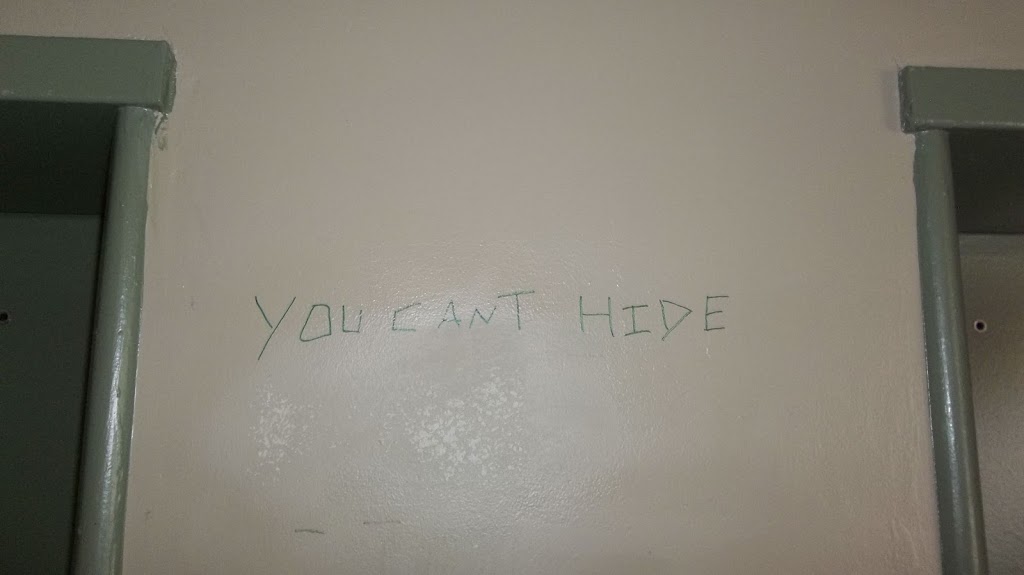 YOU CANT HIDE